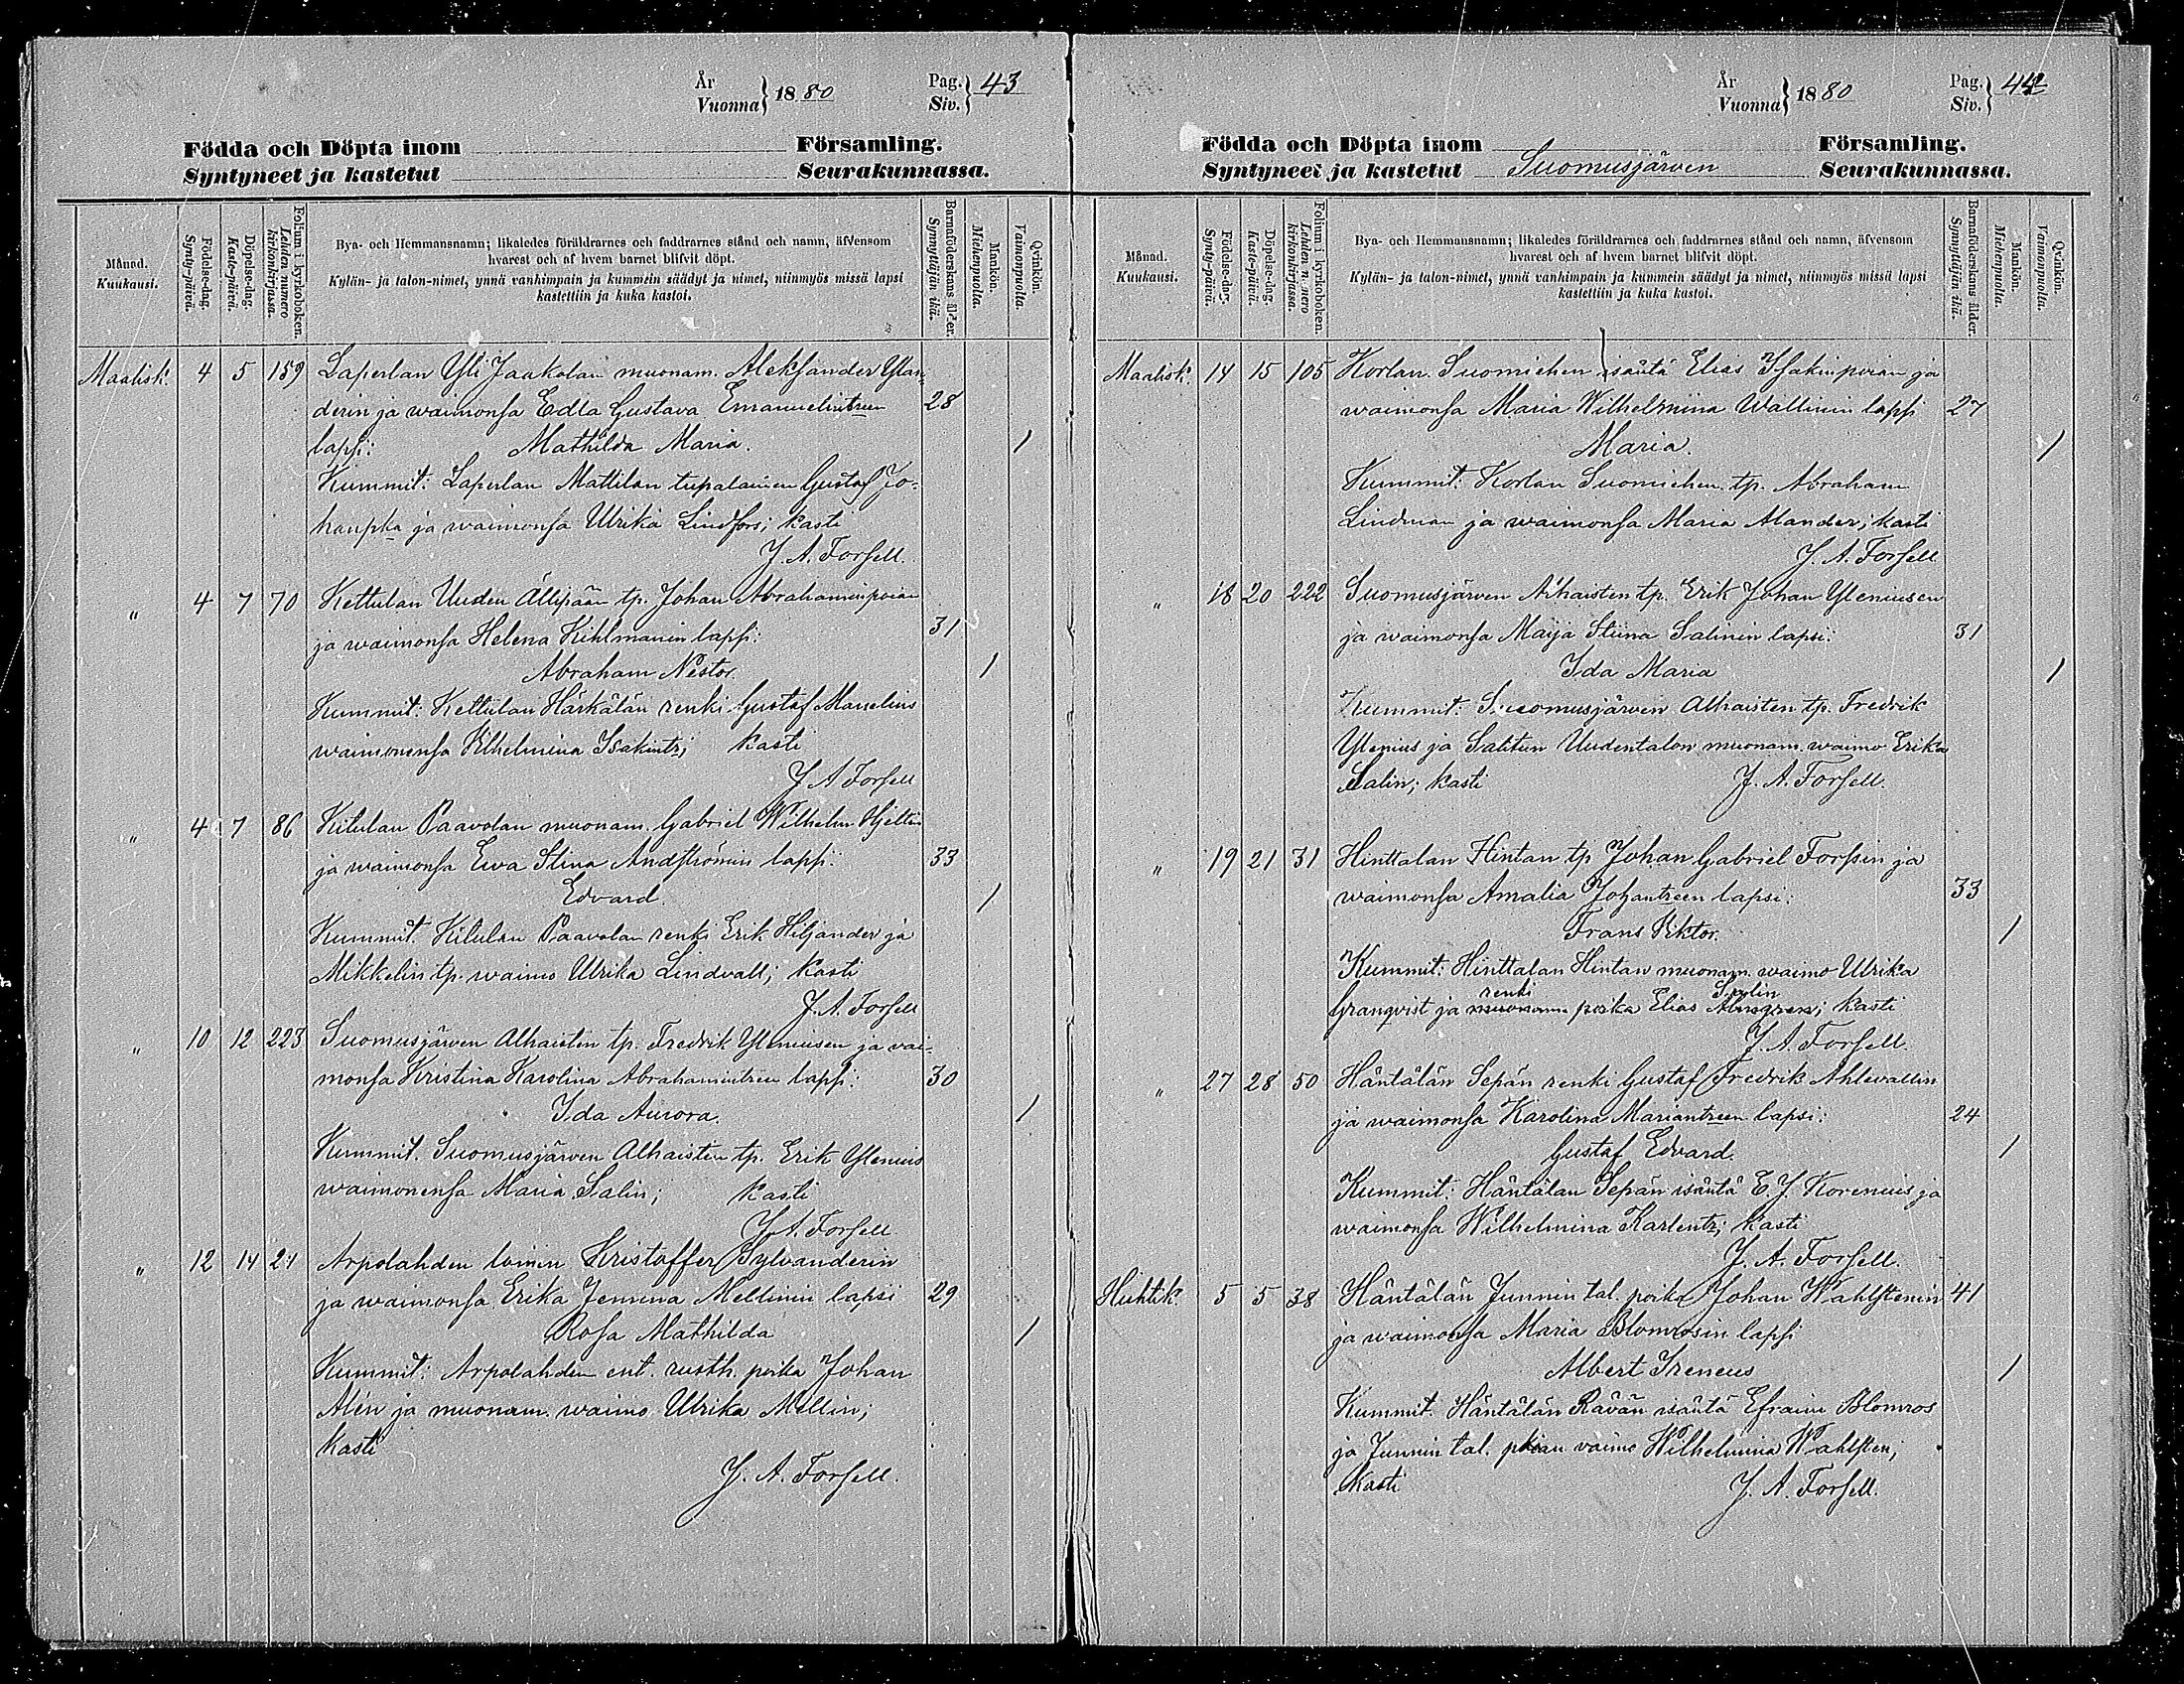 År
Vuonna } 1880
Pag.
Siv. } 43
Födda och Döpta inom Församling.
Syntyneet ja kastetut Seurakunnassa.
Månad.
Kuukausi.
Födelse-dag.
Synty-päivä.
Döpelse-dag.
Kaste-päivä.
Folium i kyrkoboken.
Lehden numero
kirkonkirjassa.
Bya- och Hemmansnamn; likaledes föräldrarnes och faddrarnes stånd och namn, äfvensom
hvarest och af hvem barnet blifvit döpt.
Kylän- ja talon-nimet, ynnä vanhimpain ja kummein säädyt ja nimet, niinmyös missä lapsi
kastettiin ja kuka kastoi.
Barnaföderskans ålder.
Synnyttäjän ikä.
Mankön.
Miehenpuolta.
Qvinkön.
Vaimonpuolta.
Maalisk. 4 5 159 Laperlan Yli Jaakolan muonam. Aleksander Ylan-
derin ja waimonsa Edla Gustava Emanuelintreen 28
lapsi: Mathilda Maria. 1
Kummit: Laperlan Mattilan tupalainen Gustaf Jo-
hanpka ja waimonsa Ulrika Lindfors; kasti
J. A. Forsell.
" 4 7 70 Kettulan Uuden Ällipään tp. Johan Abrahaminpoian
ja waimonsa Helena Kihlmanin lapsi: 31
Abraham Nestor. 1
Kummit: Kettulan Härkälän renki Gustaf Manelius
waimonensa Vilhelmina Isakintr; kasti
J. A. Forsell
" 4 7 86 Kitulan Paavolan muonam. Gabriel Wilhelm Hjeltin
ja waimonsa Ewa Stina Andströmin lapsi: 33
Edvard. 1
Kummit. Kitulan Paavolan renki Erik Hiljander ja
Mikkelin tp. waimo Ulrika Lindvall; kasti
J. A. Forsell
" 10 12 223 Suomusjärwen Alhaisten tp. Fredrik Yleniusen ja vai-
monsa Kristina Karolina Abrahamintreen lapsi: 30
Ida Aurora. 1
Kummit. Suomusjärwen Alhaisten tp. Erik Ylenius
waimonensa Maria Salin; kasti
J. A. Forsell
" 12 14 21 Arpolahden Kristoffer Sylvanderin
ja waimonsa Erika Jemina Mellinin lapsi 29
Rosa Mathilda 1
Kummit: Arpolahden ent. rusth. poika Johan
Alén ja muonam. waimo Ulrika Mellin;
kasti
J. A. Forsell.
År
Vuonna } 1880
Pag.
Siv. } 44
Födda och Döpta inom Församling.
Syntyneet ja kastetut Suomusjärven Seurakunnassa.
Månad.
Kuukausi.
Födelse-dag.
Synty-päivä.
Döpelse-dag.
Kaste-päivä.
Folium i kyrkoboken.
Lehden numero
kirkonkirjassa.
Bya- och Hemmansnamn; likaledes föräldrarnes och faddrarnes stånd och namn, äfvensom
hvarest och af hvem barnet blifvit döpt.
Kylän- ja talon-nimet, ynnä vanhimpain ja kummein säädyt ja nimet, niinmyös missä lapsi
kastettiin ja kuka kastoi.
Barnaföderskans ålder.
Synnyttäjän ikä.
Mankön.
Miehenpuolta.
Qvinkön.
Vaimonpuolta.
Maalisk. 14 15 105 Korlan Suomiehen isäntä Elias Isakinpoian ja
waimonsa Maria Wilhelmina Wallinin lapsi 27
Maria. 1
Kummit: Korlan Suomiehen tp. Abraham
Lindman ja waimonsa Maria Alander; kasti
J. A. Forsell
" 18 20 222 Suomusjärven Alhaisten tp. Erik Johan Yleniusen
ja waimonsa Maija Stiina Salinin lapsi: 31
Ida Maria 1
Kummit: Suomusjärven Alhaisten tp. Fredrik
Ylenius ja Salitun Uudentalon muonam. waimo Erika
Salin; kasti J. A. Forsell.
" 19 21 31 Hinttalan Hintan tp Johan Gabriel Forssin ja
waimonsa Amalia Johantreen lapsi: 33
Frans Viktor. 1
Kummit: Hinttalan Hintan muonam. waimo Ulrika
renki Salin
Granqvist ja muonam poika Elias Almgren; kasti
J. A. Forsell.
" 27 28 50 Häntälän Sepän renki Gustaf Fredrik Ahlevallin
ja waimonsa Karolina Mariantreen lapsi: 24
Gustaf Edvard. 1
Kummit: Häntälän Sepän isäntä E. J. Korenius ja
waimonsa Wilhelmina Karlentr; kasti
J. A. Forsell.
Huhtik. 5 5 38 Häntälän Junnin tal. poika Johan Wahlstenin 41
ja waimonsa Maria Blomrosin lapsi
Albert Ireneus 1
Kummit. Häntälän Rävän isäntä Efraim Blomros
ja Junnin tal. poian vaimo Wilhelmina Wahlsten,
kasti J. A. Forsell.